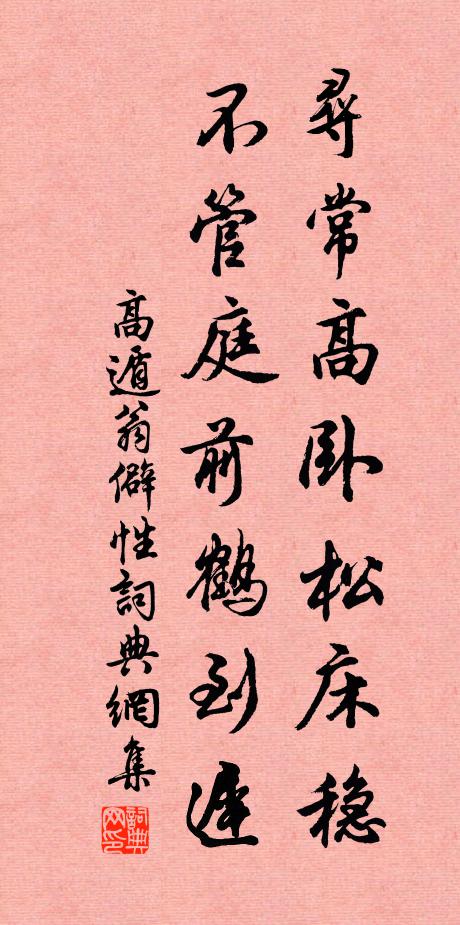 尋常高卧松床稳
不管庭前鶴到遲
高遁翁僻性詞典網集
詞典网印